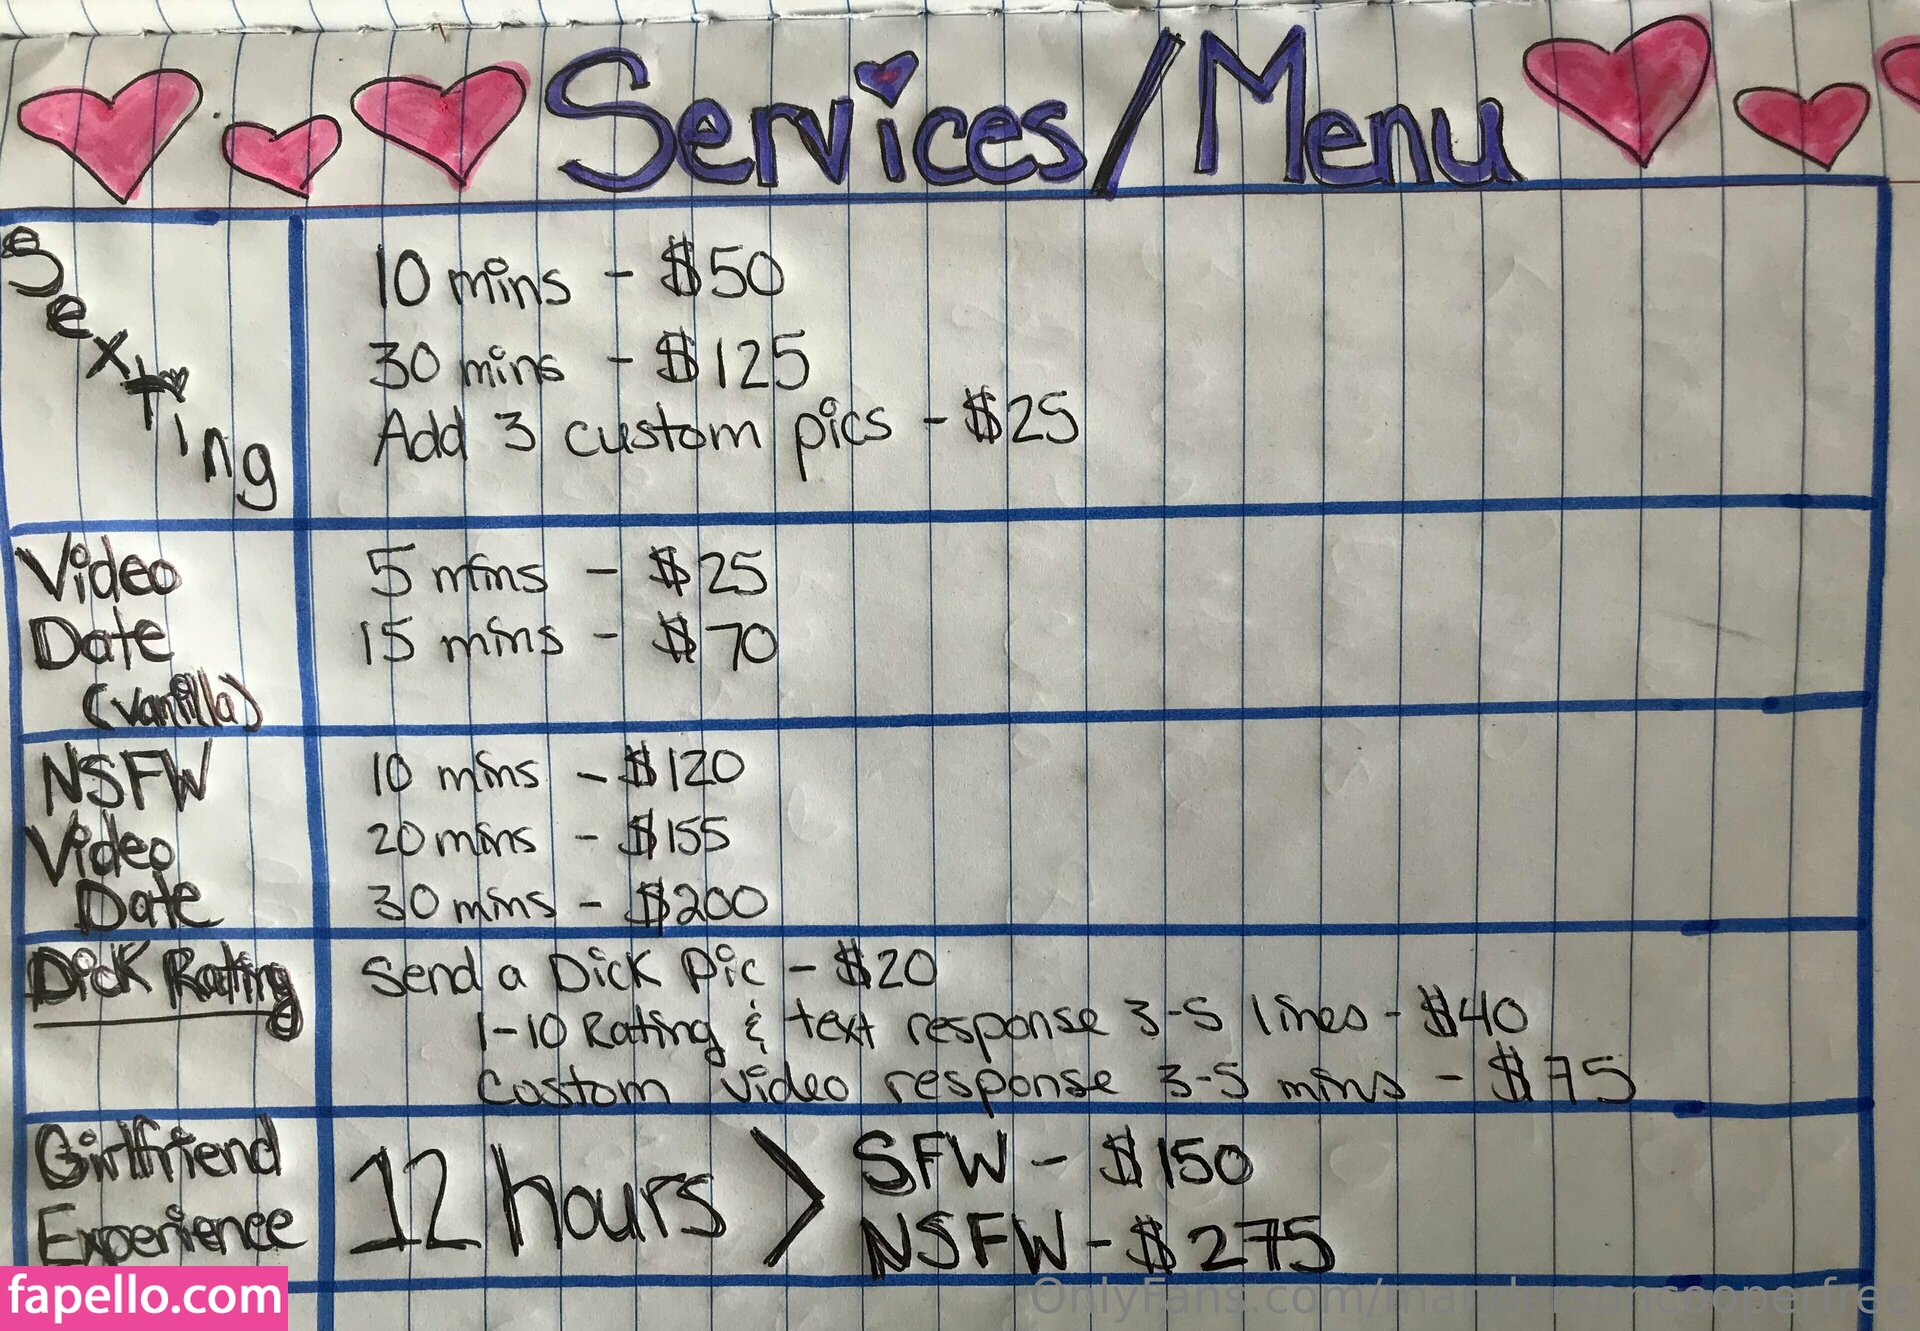 Services/Menu
Sexting
10 mins - $50
30 mins - $125
Add 3 custom pics - $25
Video
Date
(vanilla)
5 mins - $25
15 mins - $70
NSFW
Video
Date
10 mins - $120
20 mins - $155
30 mins - $200
Dick Rating
Send a Dick Pic - $20
1-10 Rating & text response 3-5 lines - $40
Custom video response 3-5 mins - $75
Girlfriend
Experience
12 hours >
SFW - $150
NSFW - $275
fapello.com
OnlyFans.com/mandersoncooperfree